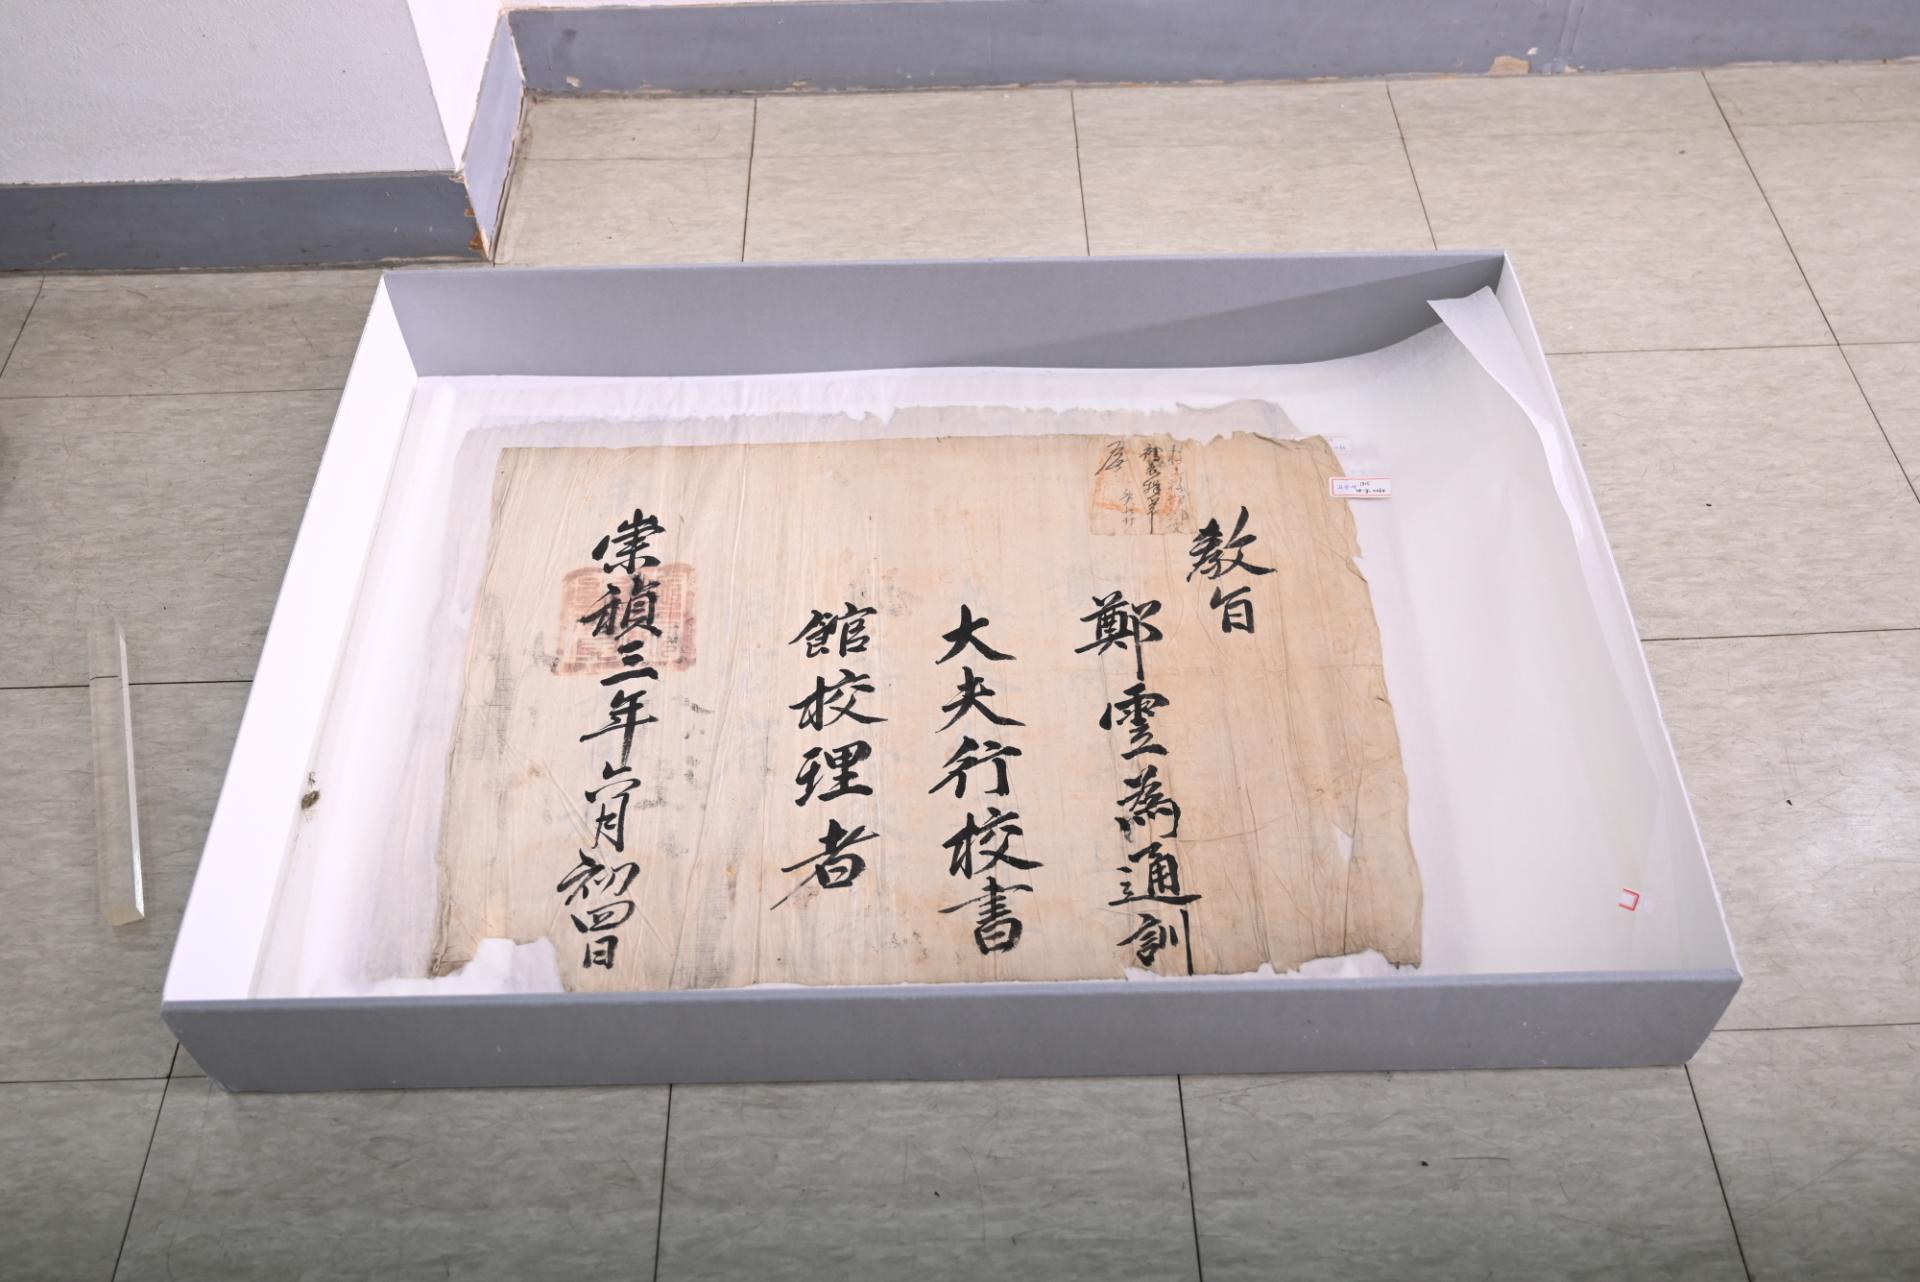 教旨
鄭雲為通訓
大夫行校書
館校理者
崇禎三年六月初四日